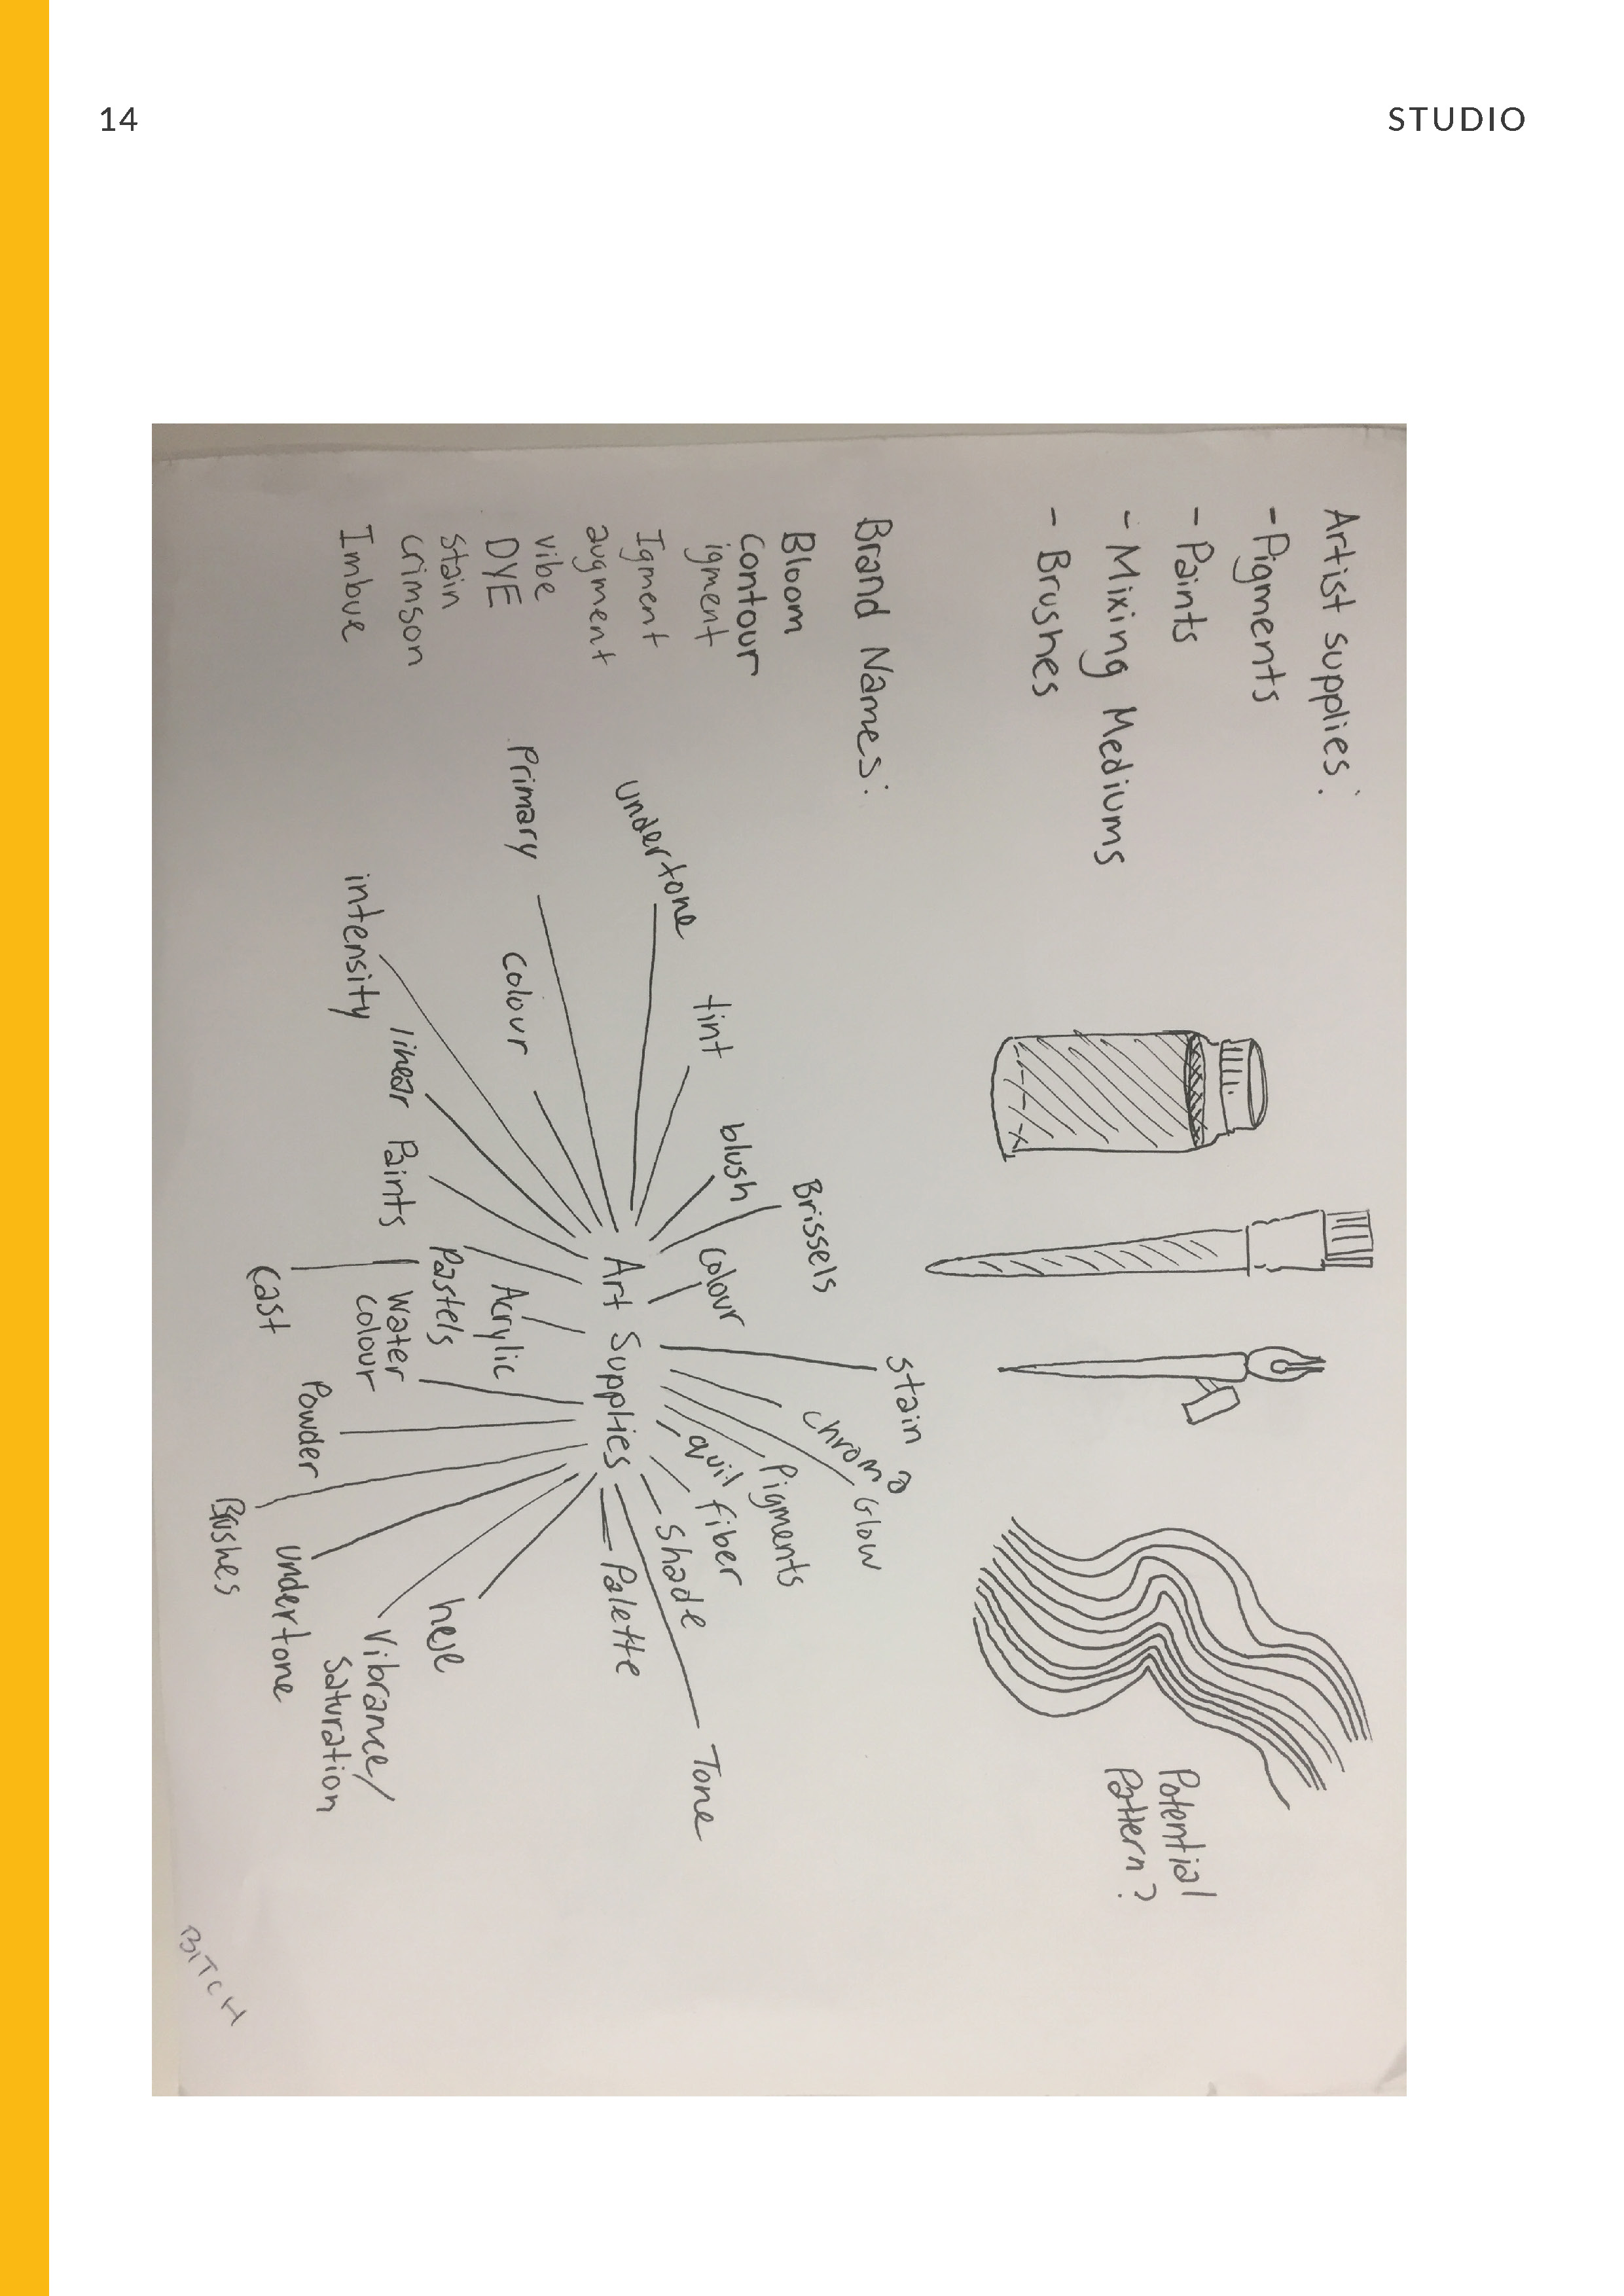 14
STUDIO
Artist supplies:
- Pigments
- Paints
- Mixing Mediums
- Brushes
Potential
Pattern?
Brand Names:
Bloom
Contour
igment
Igment
augment
vibe
DYE
Stain
crimson
Imbue
Art Supplies
undertone
Primary
colour
intensity
linear
Paints
Cast
Pastels
Water
colour
Acrylic
Powder
Brushes
undertone
Vibrance/
Saturation
hue
Palette
Tone
Shade
fiber
quil
Pigments
Glow
chroma
Stain
colour
Brissels
blush
tint
BITCH